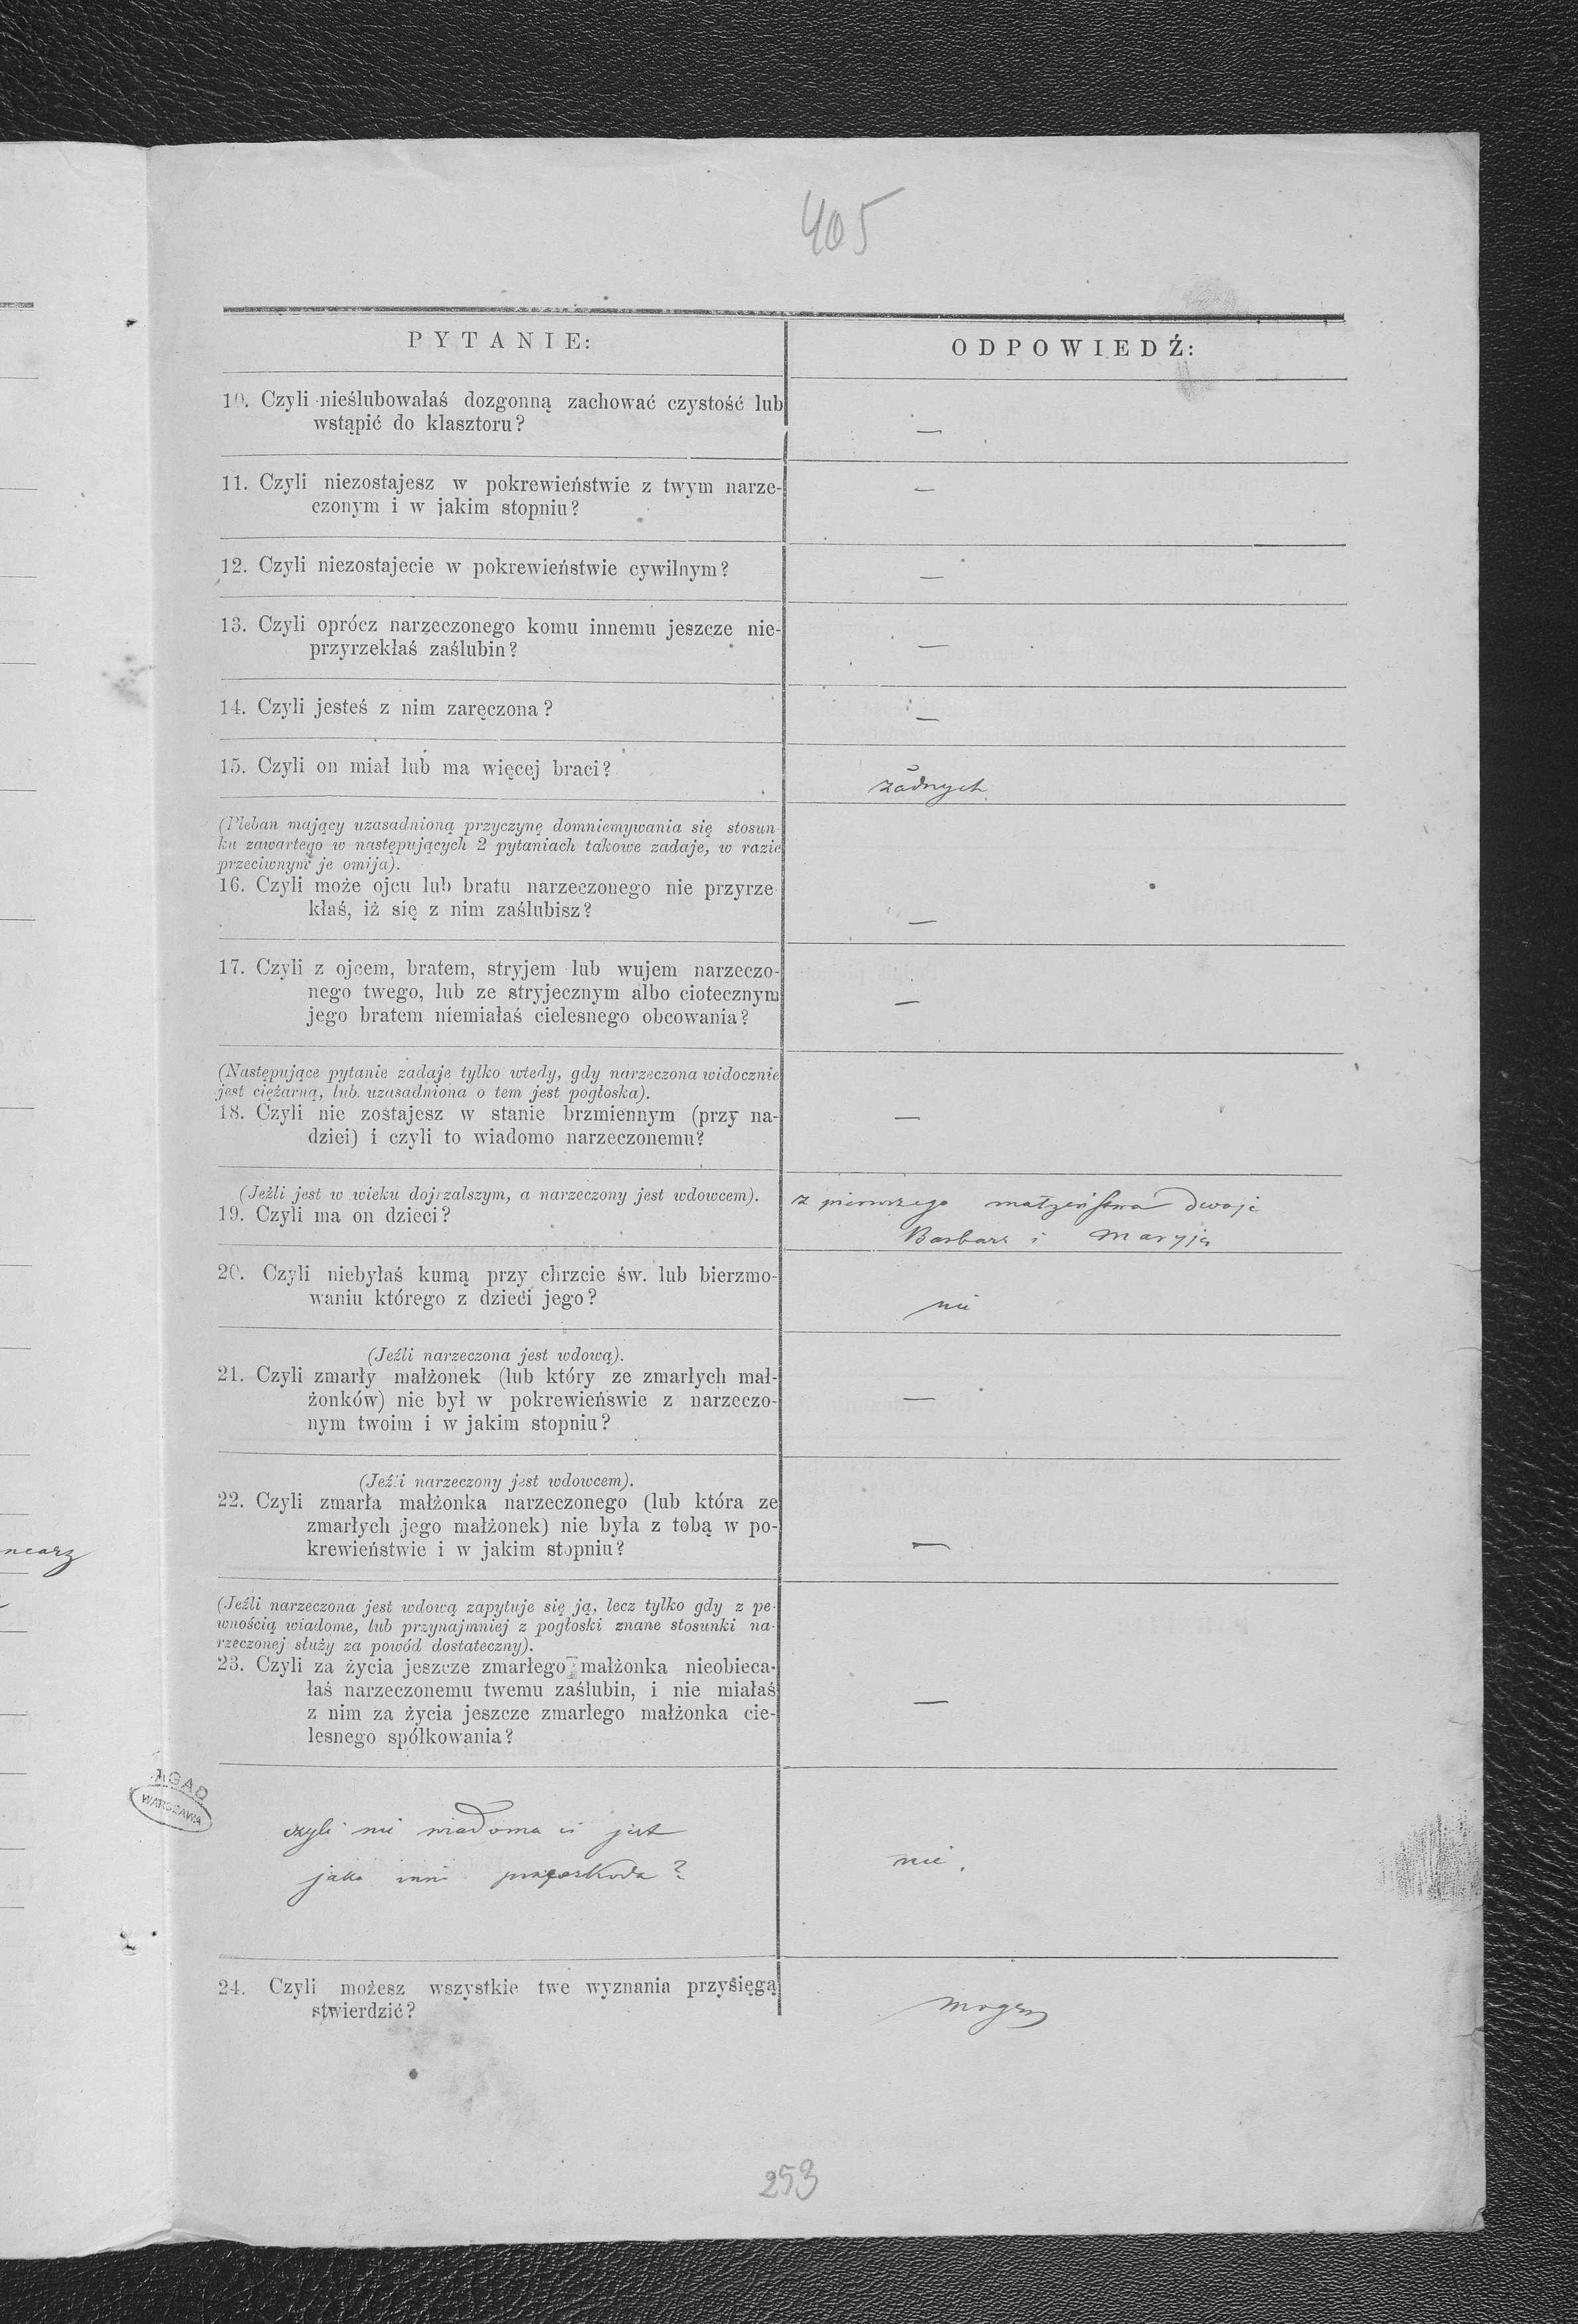 405
PYTANIE:
ODPOWIEDŹ:
10. Czyli nieślubowałaś dozgonną zachować czystość lub
wstąpić do klasztoru?
—
11. Czyli niezostajesz w pokrewieństwie z twym narze-
czonym i w jakim stopniu?
—
12. Czyli niezostajecie w pokrewieństwie cywilnym?
—
13. Czyli oprócz narzeczonego komu innemu jeszcze nie-
przyrzekłaś zaślubin?
—
14. Czyli jesteś z nim zaręczona?
—
15. Czyli on miał lub ma więcej braci?
żadnych
(Pleban mający uzasadnioną przyczynę domniemywania się stosun-
ku zawartego w następujących 2 pytaniach takowe zadaje, w razie
przeciwnym je omija).
16. Czyli może ojcu lub bratu narzeczonego nie przyrze-
kłaś, iż się z nim zaślubisz?
—
17. Czyli z ojcem, bratem, stryjem lub wujem narzeczo-
nego twego, lub ze stryjecznym albo ciotecznym
jego bratem niemiałaś cielesnego obcowania?
—
(Następujące pytanie zadaje tylko wtedy, gdy narzeczona widocznie
jest ciężarną, lub uzasadniona o tem jest pogłoska).
18. Czyli nie zostajesz w stanie brzmiennym (przy na-
dziei) i czyli to wiadomo narzeczonemu?
—
(Jeżli jest w wieku dojrzalszym, a narzeczony jest wdowcem).
19. Czyli ma on dzieci?
z pierwszego małżeństwa dwoje
Barbara i Maryja
20. Czyli niebyłaś kumą przy chrzcie św. lub bierzmo-
waniu którego z dzieci jego?
nie
(Jeźli narzeczona jest wdową).
21. Czyli zmarły małżonek (lub który ze zmarłych mał-
żonków) nie był w pokrewieńswie z narzeczo-
nym twoim i w jakim stopniu?
—
(Jeźli narzeczony jest wdowcem).
22. Czyli zmarła małżonka narzeczonego (lub która ze
zmarłych jego małżonek) nie była z tobą w po-
krewieństwie i w jakim stopniu?
—
(Jeźli narzeczona jest wdową zapytuje się ją, lecz tylko gdy z pe-
wnością wiadome, lub przynajmniej z pogłoski znane stosunki na-
rzeczonej służy za powód dostateczny).
23. Czyli za życia jeszcze zmarłego małżonka nieobieca-
łaś narzeczonemu twemu zaślubin, i nie miałaś
z nim za życia jeszcze zmarłego małżonka cie-
lesnego spółkowania?
—
AGAD
WARSZAWA
czyli nie wiadoma ci jest
jaka inna przeszkoda?
nie.
24. Czyli możesz wszystkie twe wyznania przysięgą
stwierdzić?
mogę
253